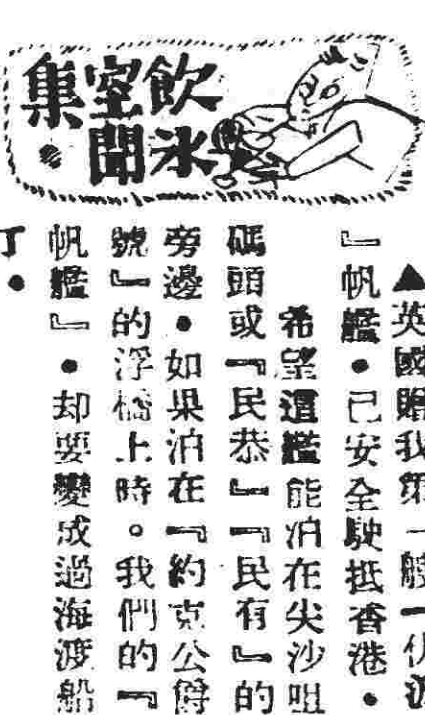 飲冰
室聞
集
▲英國贈我第一艘『伏波
』帆艦•已安全駛抵香港•
希望這艦能泊在尖沙咀
碼頭或『民恭』『民有』的
旁邊•如果泊在『約克公爵
號』的浮橋上時。我們的『
帆艦』•却要變成過海渡船
了•